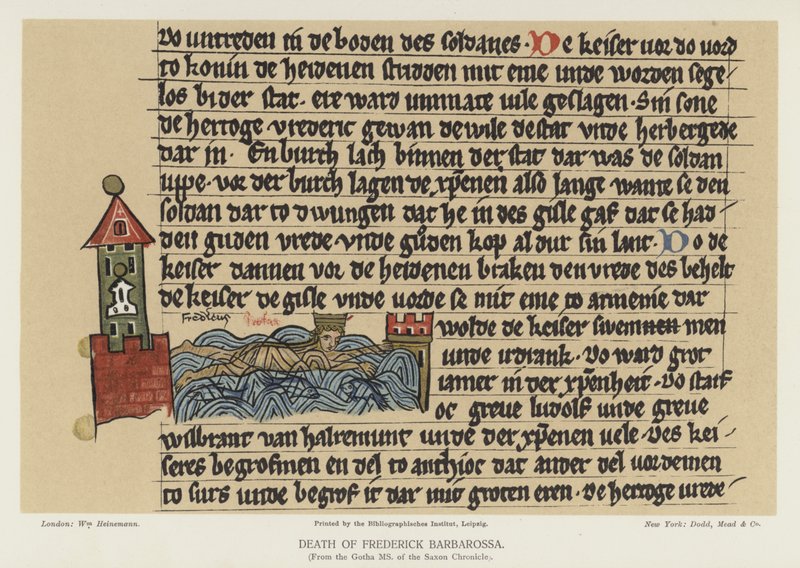 Do untreden in de boden des soldanes. De keiser vor do vord
to konin de heidenen stridden mit eme unde worden sege-
los bi der stat. ere ward unmate vile geslagen. Sin sone
de hertoge vrederic gewan dewile de stat vnde herbergede
dar in. En burch lach binnen der stat dar was de soldan
uppe. vor der burch lagen de xp̄enen also lange wante se den
soldan dar to dwungen dat he in des gisle gaf dat se had-
den guden vrede vnde gůden kop al dur sin lant. Do de
keiser dannen vor de heidenen braken den vrede des behelt
de keiser de gisle vnde vorde se mit eme to armenie dar
Fredicus
wolde de keiser swemmen
unde irdrank. Do ward grot
iamer in der xp̄enheit. Do starf
oc greue ludolf unde greue
wilbrant van halremunt unde der xp̄enen uele. Des kei-
seres begrofmen en del to anthioc dat ander del vordemen
to surs unde begrof it dar mit groten eren. de hertoge vrede-
London: Wm Heinemann.
Printed by the Bibliographisches Institut, Leipzig.
New York: Dodd, Mead & Co.
DEATH OF FREDERICK BARBAROSSA.
(From the Gotha MS. of the Saxon Chronicle).